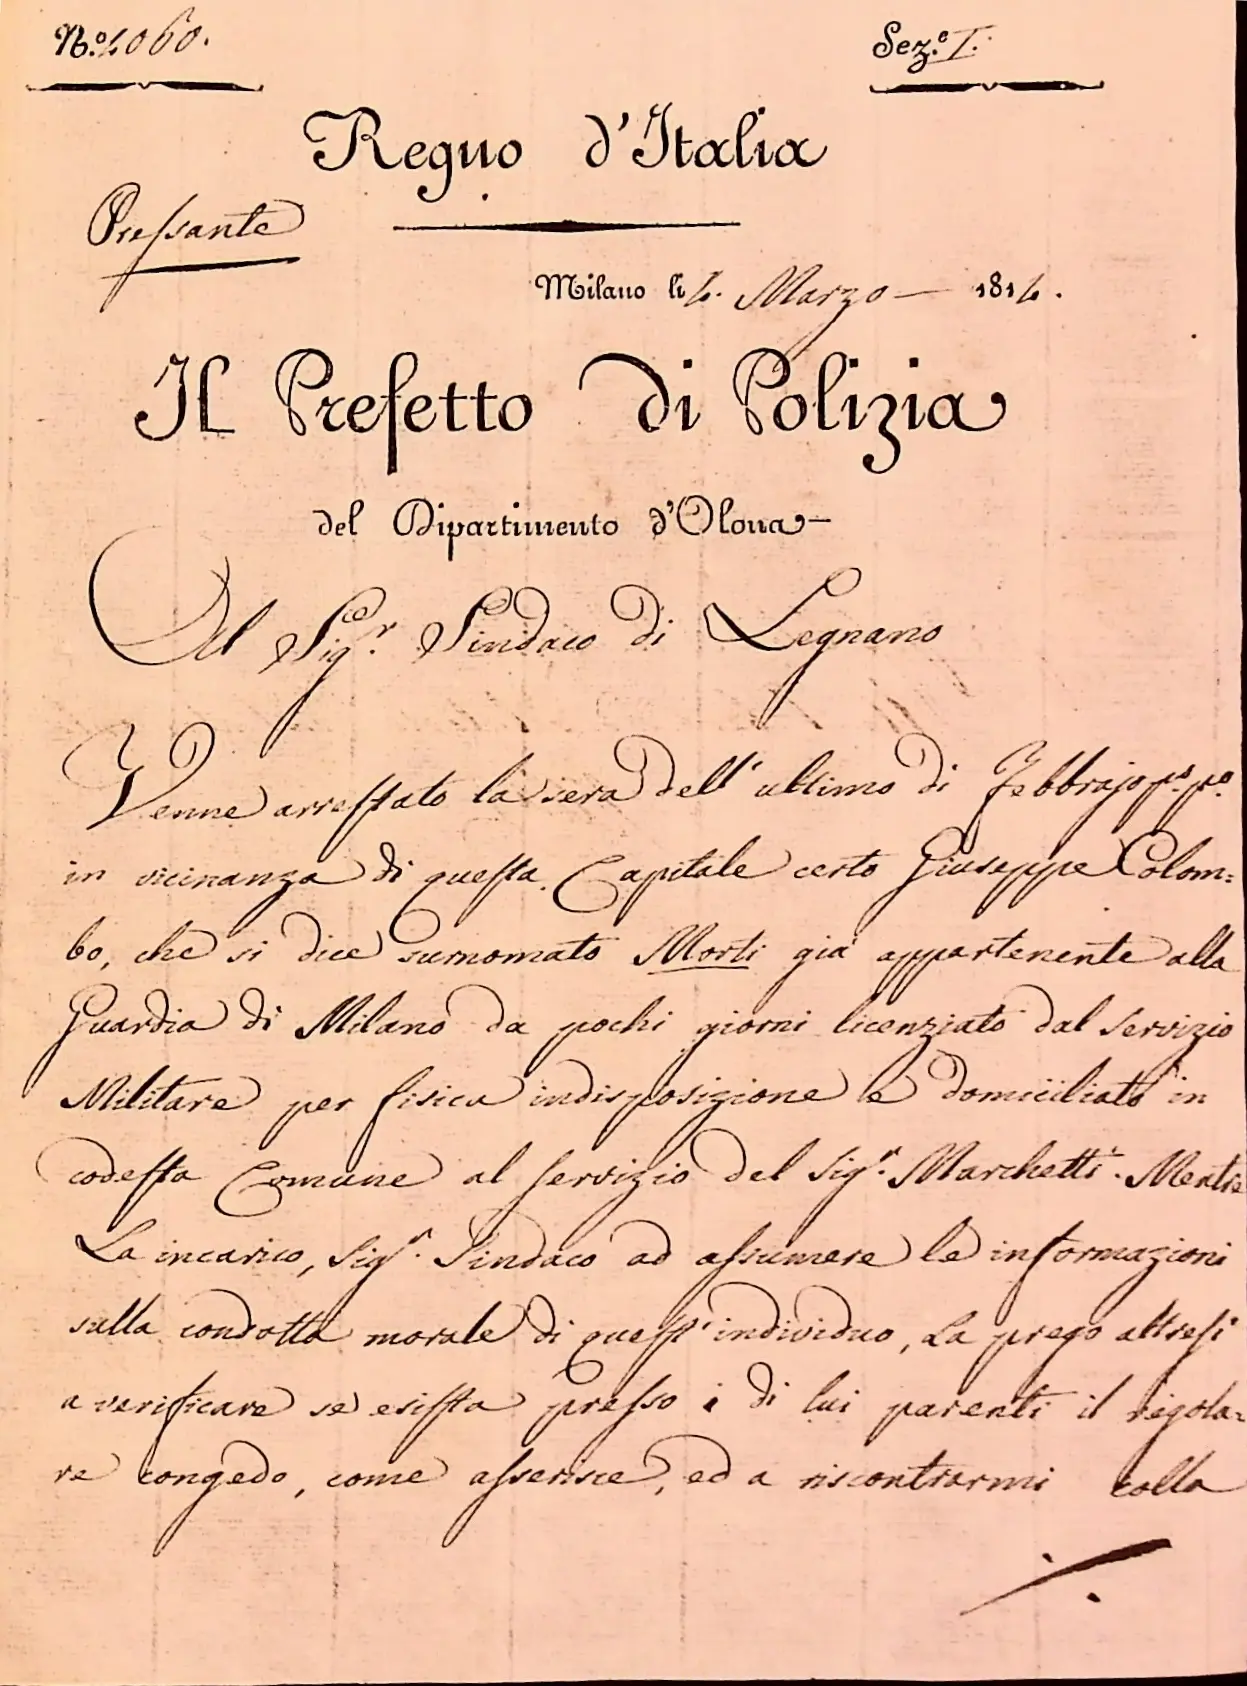 N.o 4060.
Sez.e I.
Regno d'Italia
Pressante
Milano li 4. Marzo — 1814.
Il Prefetto di Polizia
del Dipartimento d'Olona
Al Sig.r Sindaco di Legnano
Venne arrestato la sera dell'ultimo di Febbrajo p.o p.o
in vicinanza di questa Capitale certo Giuseppe Colom=
bo, che si dice surnomato Morti già appartenente alla
Guardia di Milano da pochi giorni licenziato dal servizio
Militare per fisica indisposizione e domiciliato in
codesta Comune al servizio del Sig.r Marchetti. Mentre
La incarico, Sig.r Sindaco ad assumere le informazioni
sulla condotta morale di quest'individuo, La prego altresì
a verificare se esista presso i di lui parenti il regola=
re congedo, come asserisce, ed a riscontrarmi colla